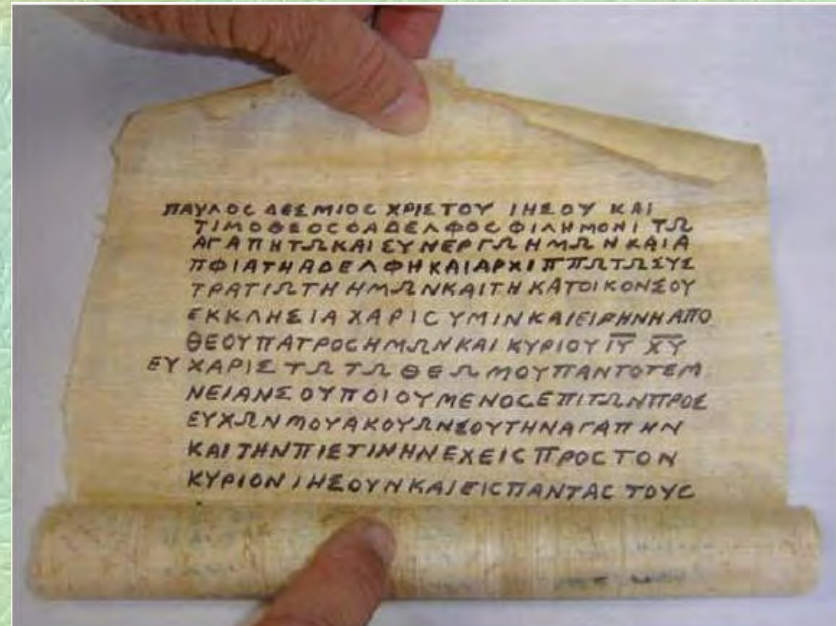 ΠΑΥΛΟС ΔΕΣΜΙΟС ΧΡΙΣΤΟΥ ΙΗΣΟΥ ΚΑΙ
ΤΙΜΟΘΕΟСΟΑΔΕΛΦΟСΦΙΛΗΜΟΝΙ ΤΩ
ΑΓΑΠΗΤΩΚΑΙΣΥΝΕΡΓΩΗΜΩΝΚΑΙΑ
ΠΦΙΑΤΗΑΔΕΛΦΗΚΑΙΑΡΧΙΠΠΩΤΩΣΥΣ
ΤΡΑΤΙΩΤΗΗΜΩΝΚΑΙΤΗΚΑΤΟΙΚΟΝΣΟΥ
ΕΚΚΛΗΣΙΑ ΧΑΡΙС ΥΜΙΝΚΑΙΕΙΡΗΝΗΑΠΟ
ΘΕΟΥΠΑΤΡΟСΗΜΩΝΚΑΙ ΚΥΡΙΟΥ Ι̅Υ̅ Χ̅Υ̅
ΕΥΧΑΡΙΣΤΩΤΩΘΕΩΜΟΥΠΑΝΤΟΤΕΜ
ΝΕΙΑΝΣΟΥΠΟΙΟΥΜΕΝΟСΕΠΙΤΩΝΠΡΟΣ
ΕΥΧΩΝΜΟΥΑΚΟΥΩΝΣΟΥΤΗΝΑΓΑΠΗΝ
ΚΑΙΤΗΝΠΙΣΤΙΝΗΝΕΧΕΙСΠΡΟСΤΟΝ
ΚΥΡΙΟΝΙΗΣΟΥΝΚΑΙΕΙСΠΑΝΤΑС ΤΟΥС